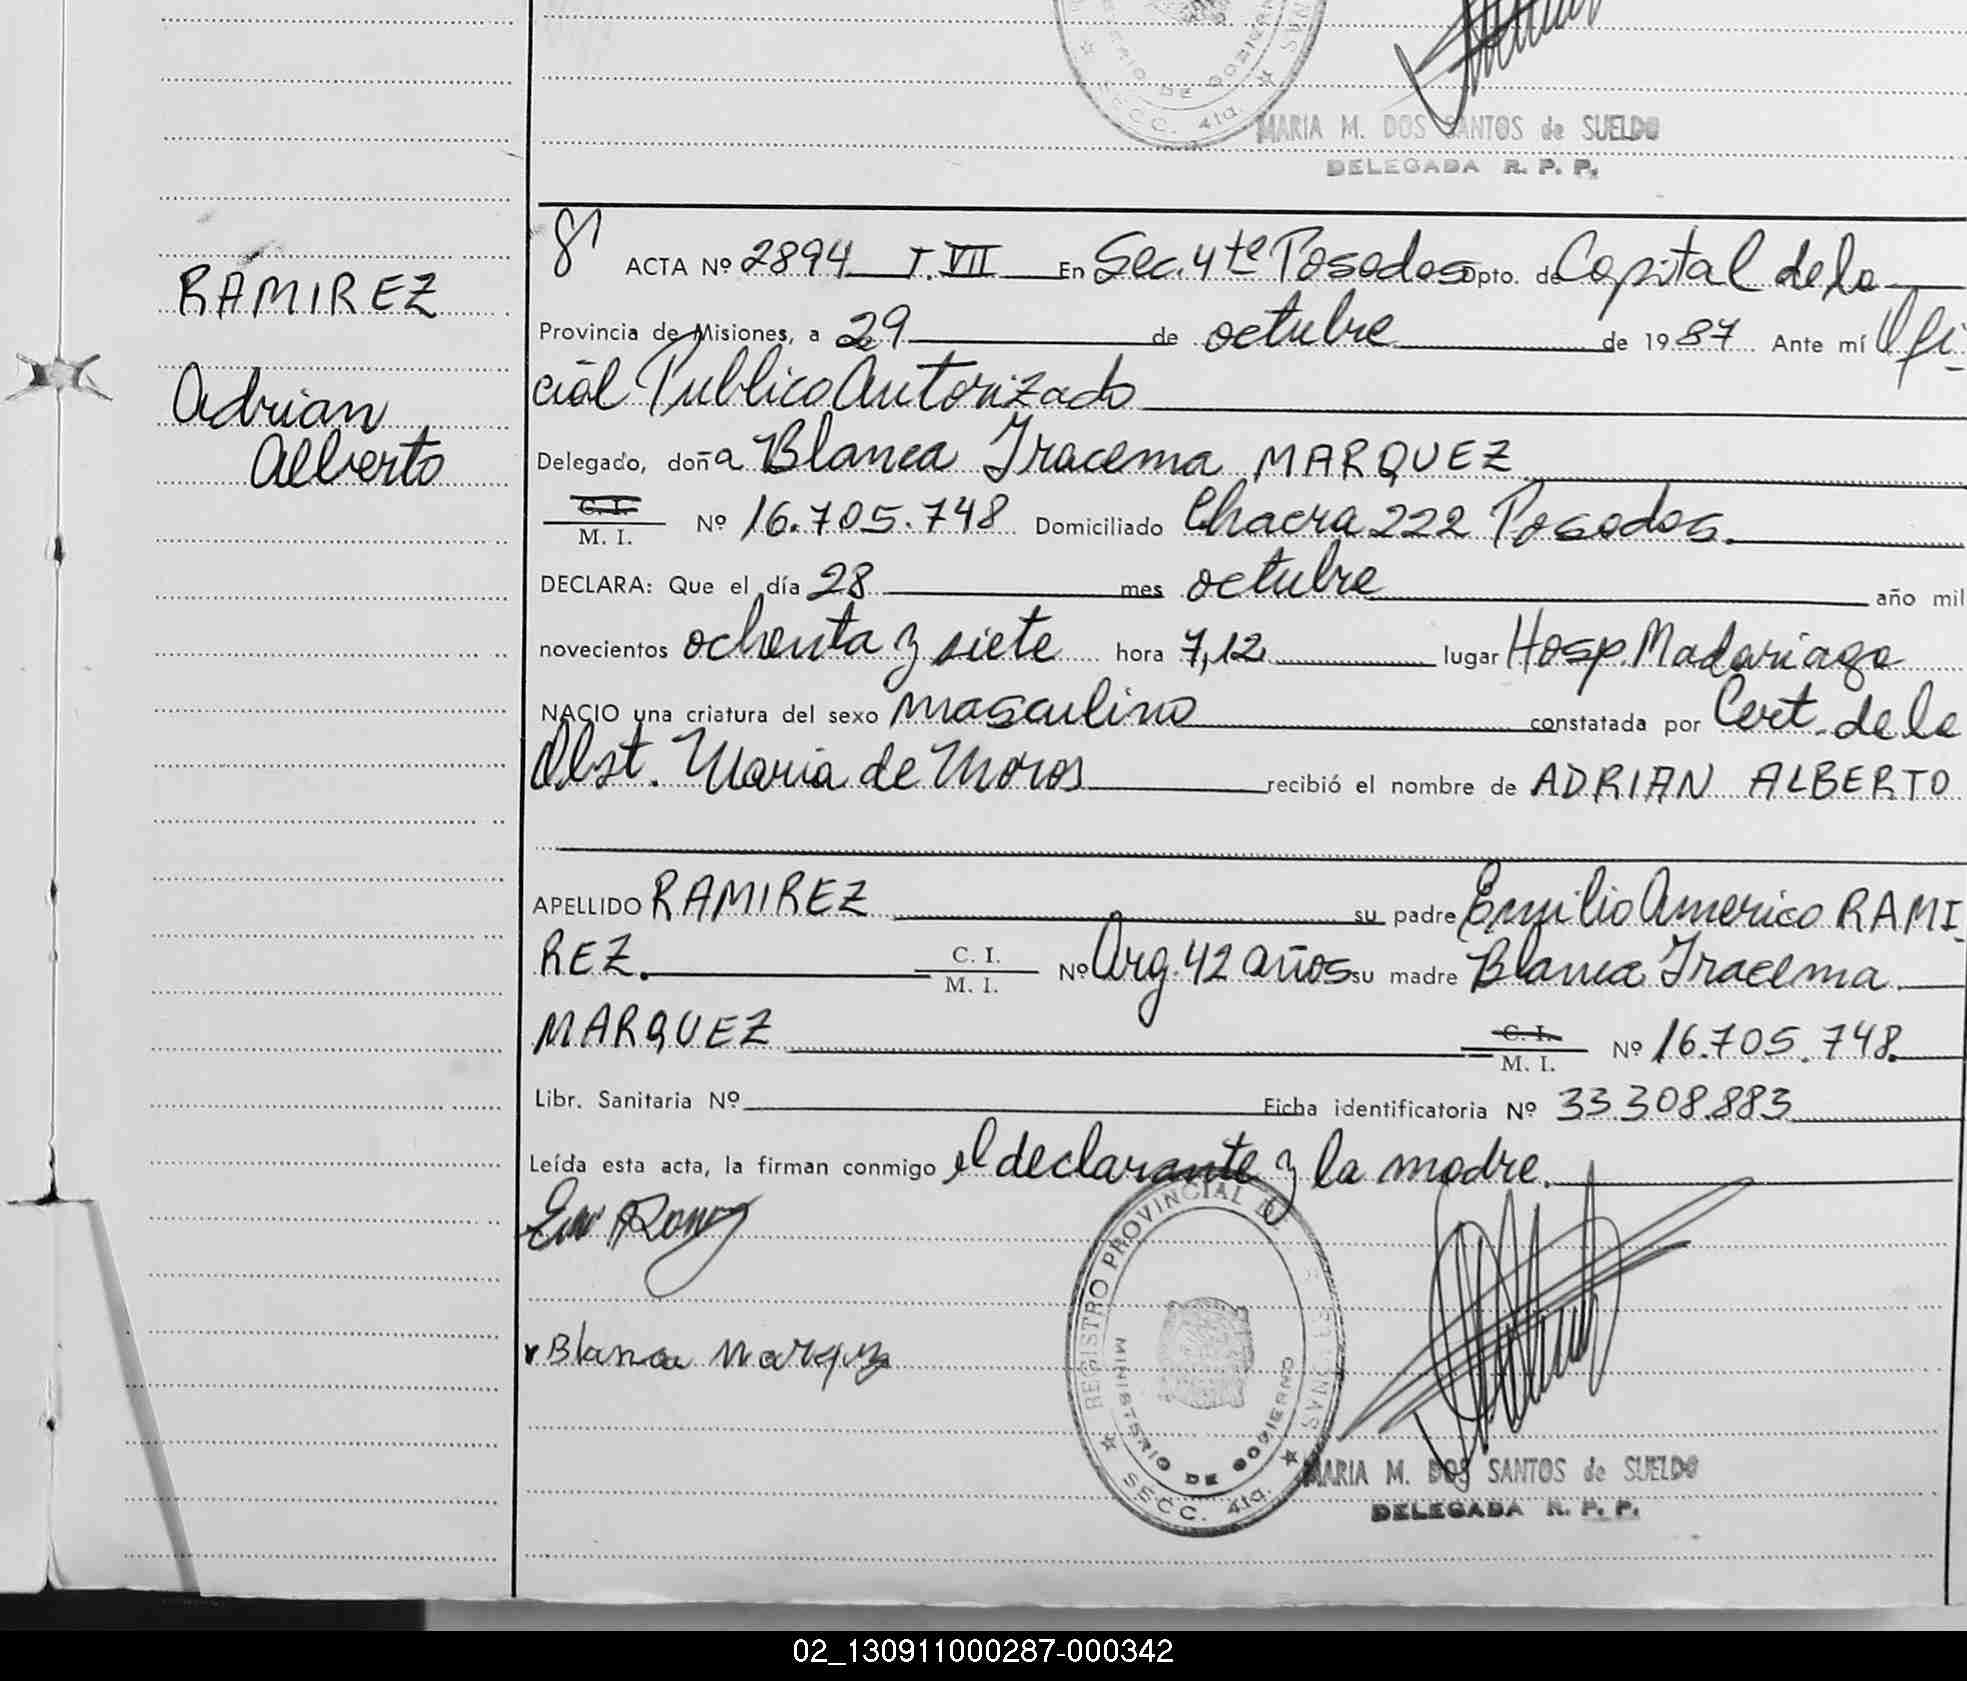 MARIA M. DOS SANTOS de SUELDO
DELEGADA R. P. P.
RAMIREZ
Adrian
Alberto
ACTA Nº 2894 T. VII En Sec. 4ta Posadas Dpto. de Capital de la
Provincia de Misiones, a 29 de octubre de 1987 Ante mí Ofi-
cial Publico Autorizado
Delegado, doña Blanca Iracema MARQUEZ
C. I.
M. I. Nº 16.705.748 Domiciliado Chacra 222 Posadas.
DECLARA: Que el día 28 mes octubre año mil
novecientos ochenta y siete hora 7,12 lugar Hosp. Madariaga
NACIO una criatura del sexo masculino constatada por Cert. de la
Obst. Maria de Moros recibió el nombre de ADRIAN ALBERTO
APELLIDO RAMIREZ su padre Emilio Americo RAMI-
REZ. C. I.
M. I. Nº Arg. 42 años su madre Blanca Iracema
MARQUEZ C. I.
M. I. Nº 16.705.748
Libr. Sanitaria Nº Ficha identificatoria Nº 33308883
Leída esta acta, la firman conmigo el declarante y la madre.
Blanca Marquez
REGISTRO PROVINCIAL DE
MINISTERIO DE GOBIERNO
SECC. 41a.
MARIA M. DOS SANTOS de SUELDO
DELEGADA R. P. P.
02_130911000287-000342